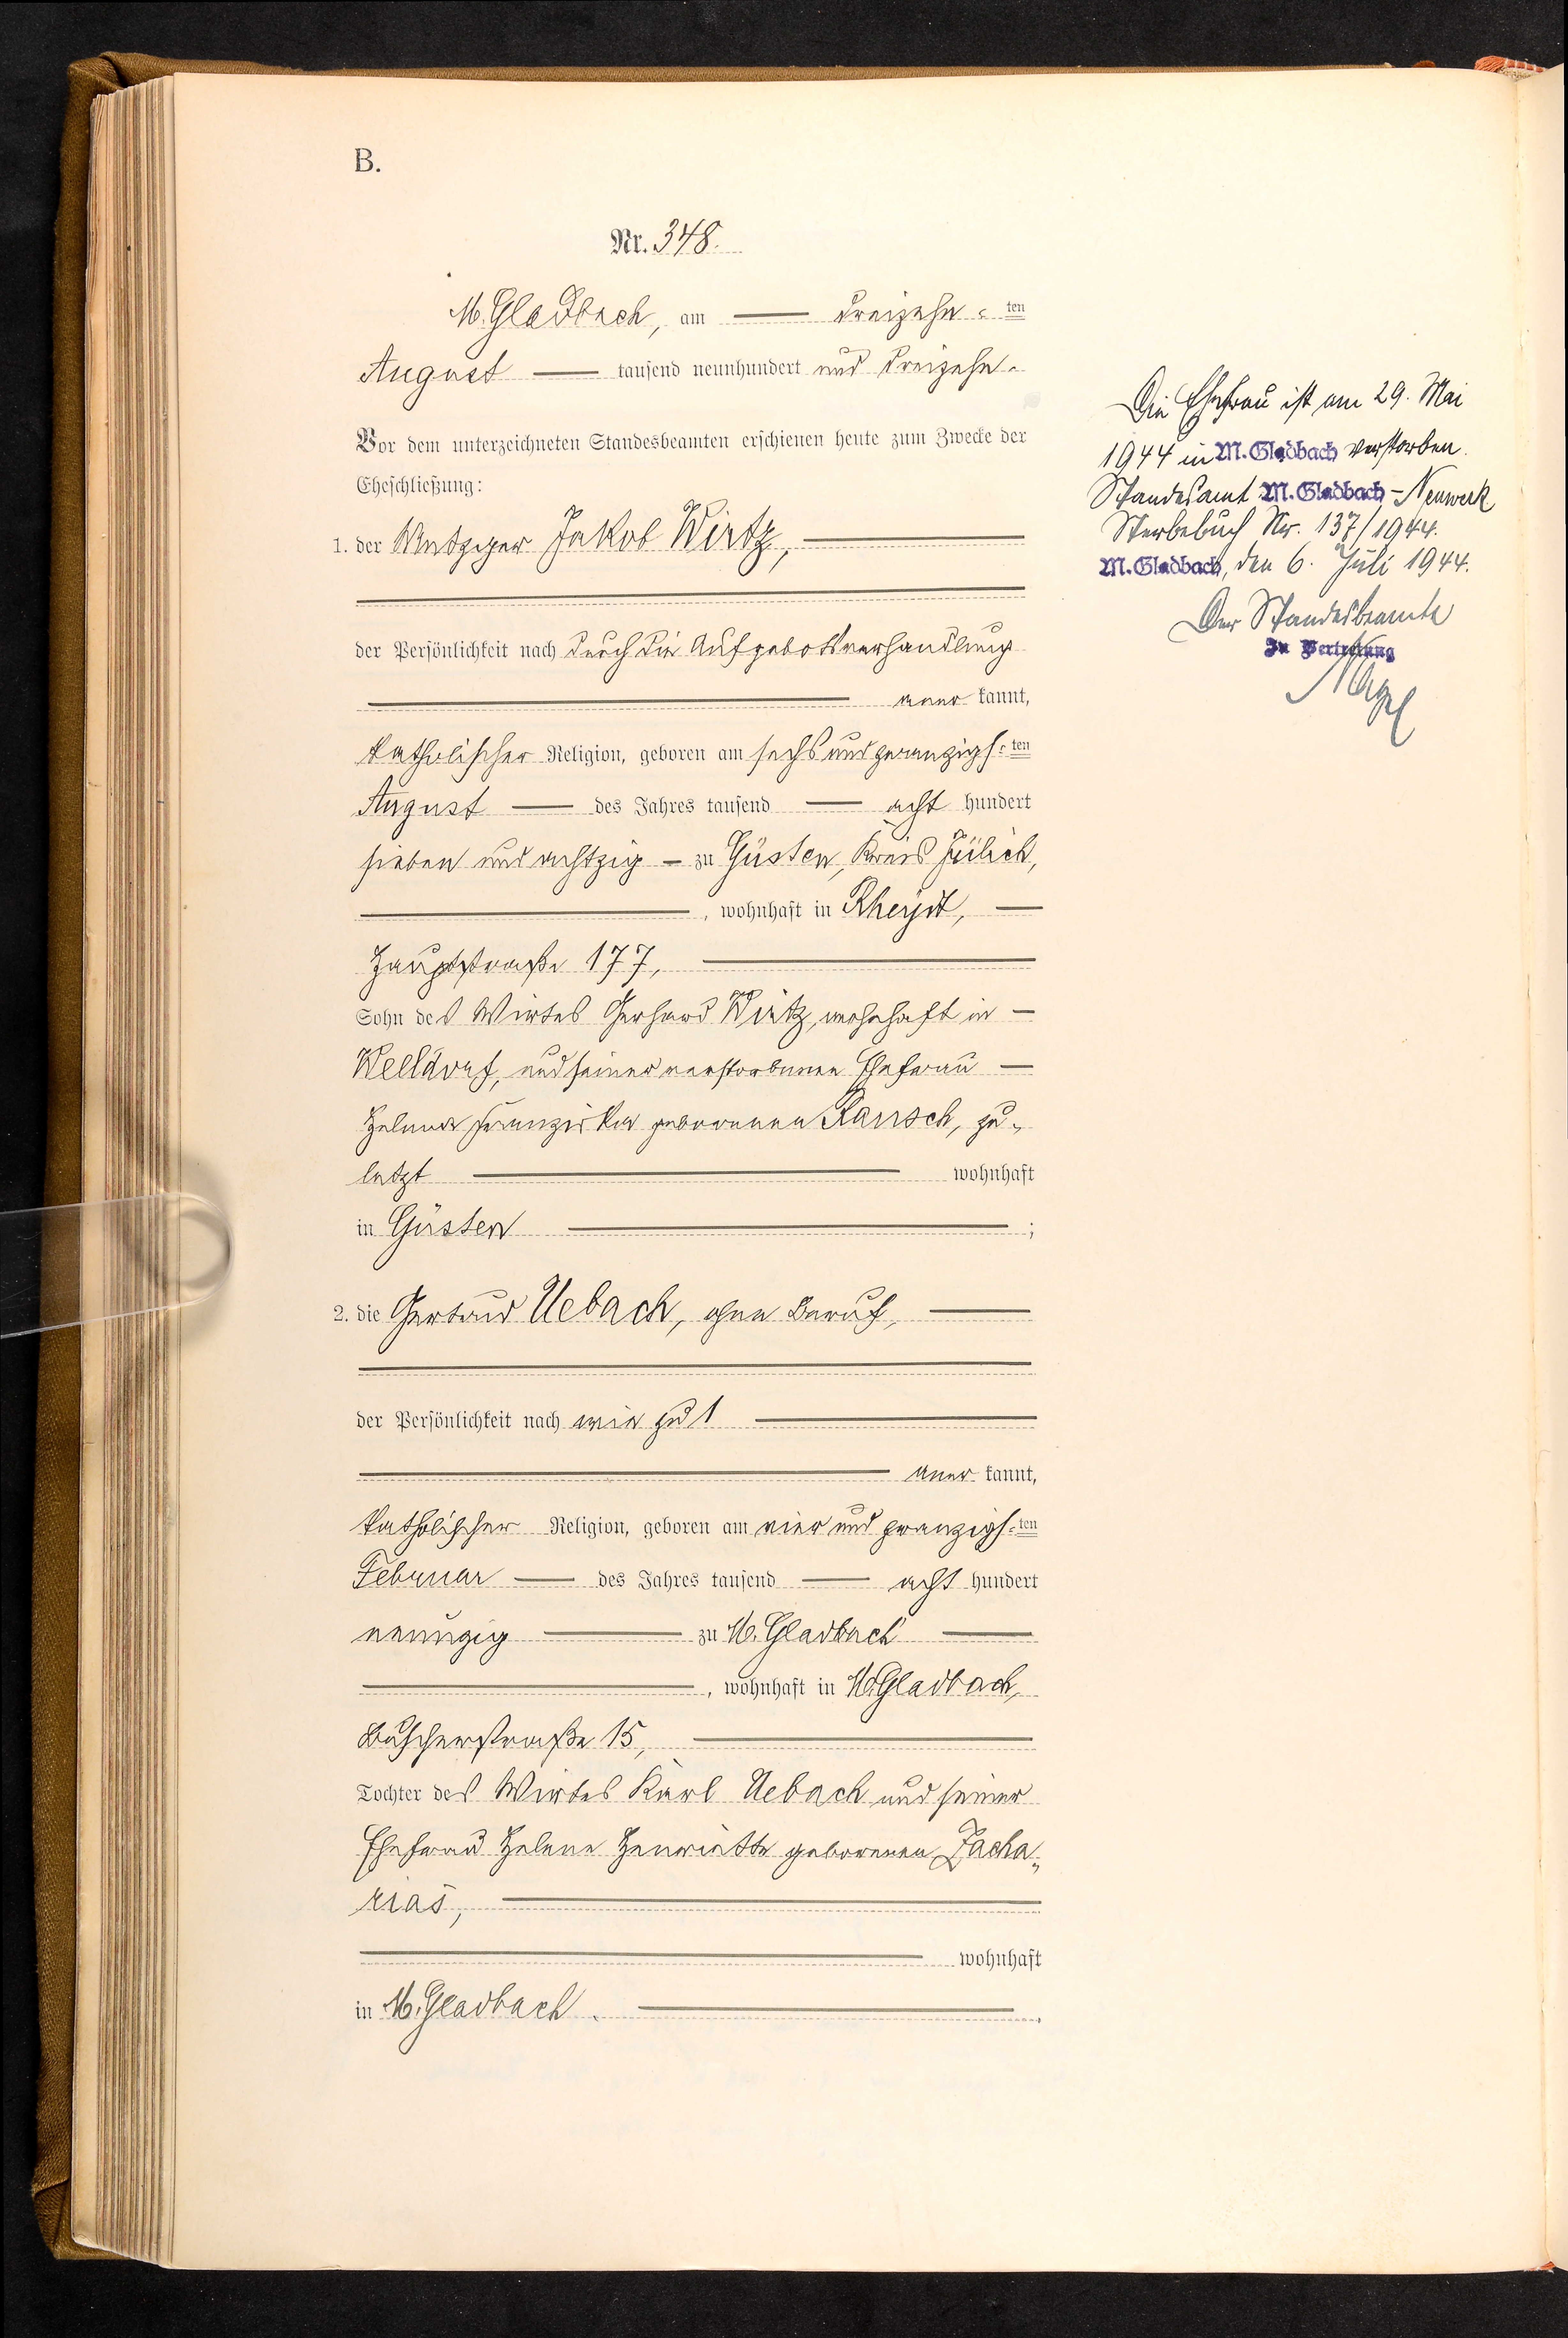 B.
Nr. 348.
M. Gladbach, am dreizehn-ten
August tausend neunhundert und dreizehn.
Vor dem unterzeichneten Standesbeamten erschienen heute zum Zwecke der
Eheschließung:
1. der Metzger Jakob Wirtz,
der Persönlichkeit nach durch die Aufgebotsverhandlung
aner kannt,
katholischer Religion, geboren am sechs und zwanzigs-ten
August des Jahres tausend acht hundert
sieben und achtzig zu Güsten, Kreis Jülich,
, wohnhaft in Rheydt,
Hauptstraße 177,
Sohn des Wirtes Gerhard Wirtz, wohnhaft in
Welldorf, und seiner verstorbenen Ehefrau
Helena Franziska geborenen Rausch, zu-
letzt wohnhaft
in Güsten ;
2. die Gertrud Uebach, ohne Beruf,
der Persönlichkeit nach wie zu 1
aner kannt,
katholischer Religion, geboren am vier und zwanzigs-ten
Februar des Jahres tausend acht hundert
neunzig zu M. Gladbach
, wohnhaft in M. Gladbach,
Buscherstraße 15,
Tochter des Wirtes Karl Uebach und seiner
Ehefrau Helene Henriette geborenen Zacha-
rias,
wohnhaft
in M. Gladbach.
Die Ehefrau ist am 29. Mai
1944 in M. Gladbach verstorben.
Standesamt M. Gladbach - Neuwerk
Sterbebuch Nr. 137/1944.
M. Gladbach, den 6. Juli 1944.
Der Standesbeamte
In Vertretung